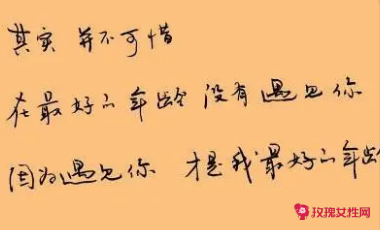 其实 并不可惜
在最好的年龄 没有遇见你
因为遇见你 才是我最好的年龄
玫瑰女性网